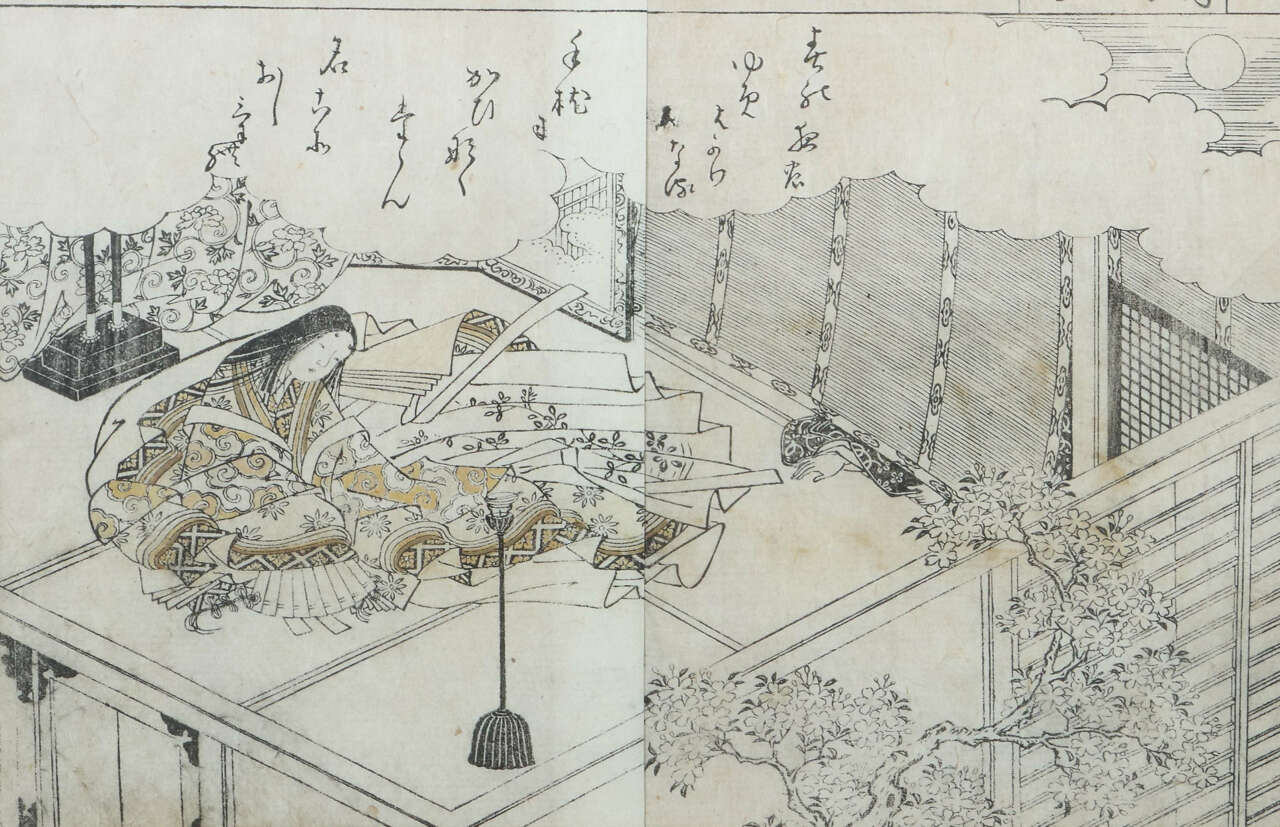 春の夜の
ゆめ
はかり
なる
手枕
に
かひなく
たゝん
名こそ
おし
けれ